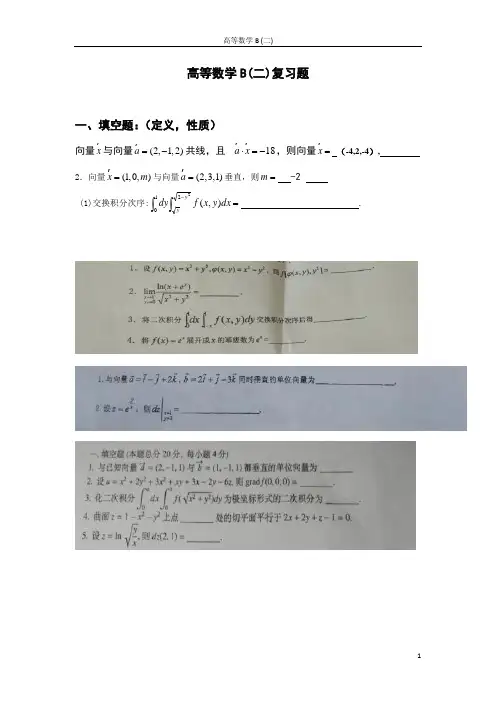 高等数学 B (二)
高等数学B(二)复习题
一、填空题:(定义,性质)
向量x与向量a=(2,-1,2)共线,且 a·x=-18,则向量x= (-4,2,-4).
2.向量x=(1,0,m)与向量a=(2,3,1)垂直,则m= -2
(1)交换积分次序: ∫dy∫f(x,y)dx= .
1. 设f(x,y)=x²+y²,φ(x,y)=x²-y²,则f[φ(x,y),y²]=
2. lim ln(x+e^y)/√(x²+y²)= .
3. 将二次积分 ∫dx∫f(x,y)dy 交换积分次序后得 .
4. 将f(x)=e^x展开成x的幂级数为e^x= .
1.与向量a=i-j+2k,b=2i+j-3k同时垂直的单位向量为
2.设z= ,则dz| =
一、填空题(本题总分20分,每小题4分)
1. 与已知向量 a=(2,-1,1)与b=(1,-1,1)都垂直的单位向量为
2. 设u=x²+2y²+3x²+xy+3x-2y-6z,则grad f(0,0,0)= .
3. 化二次积分∫dx∫f(√(x²+y²))dy为极坐标形式的二次积分为 .
4. 曲面z=1-x²-y²上点 处的切平面平行于2x+2y+z-1=0.
5. 设z=ln√(y/x),则dz(2,1)= .
1